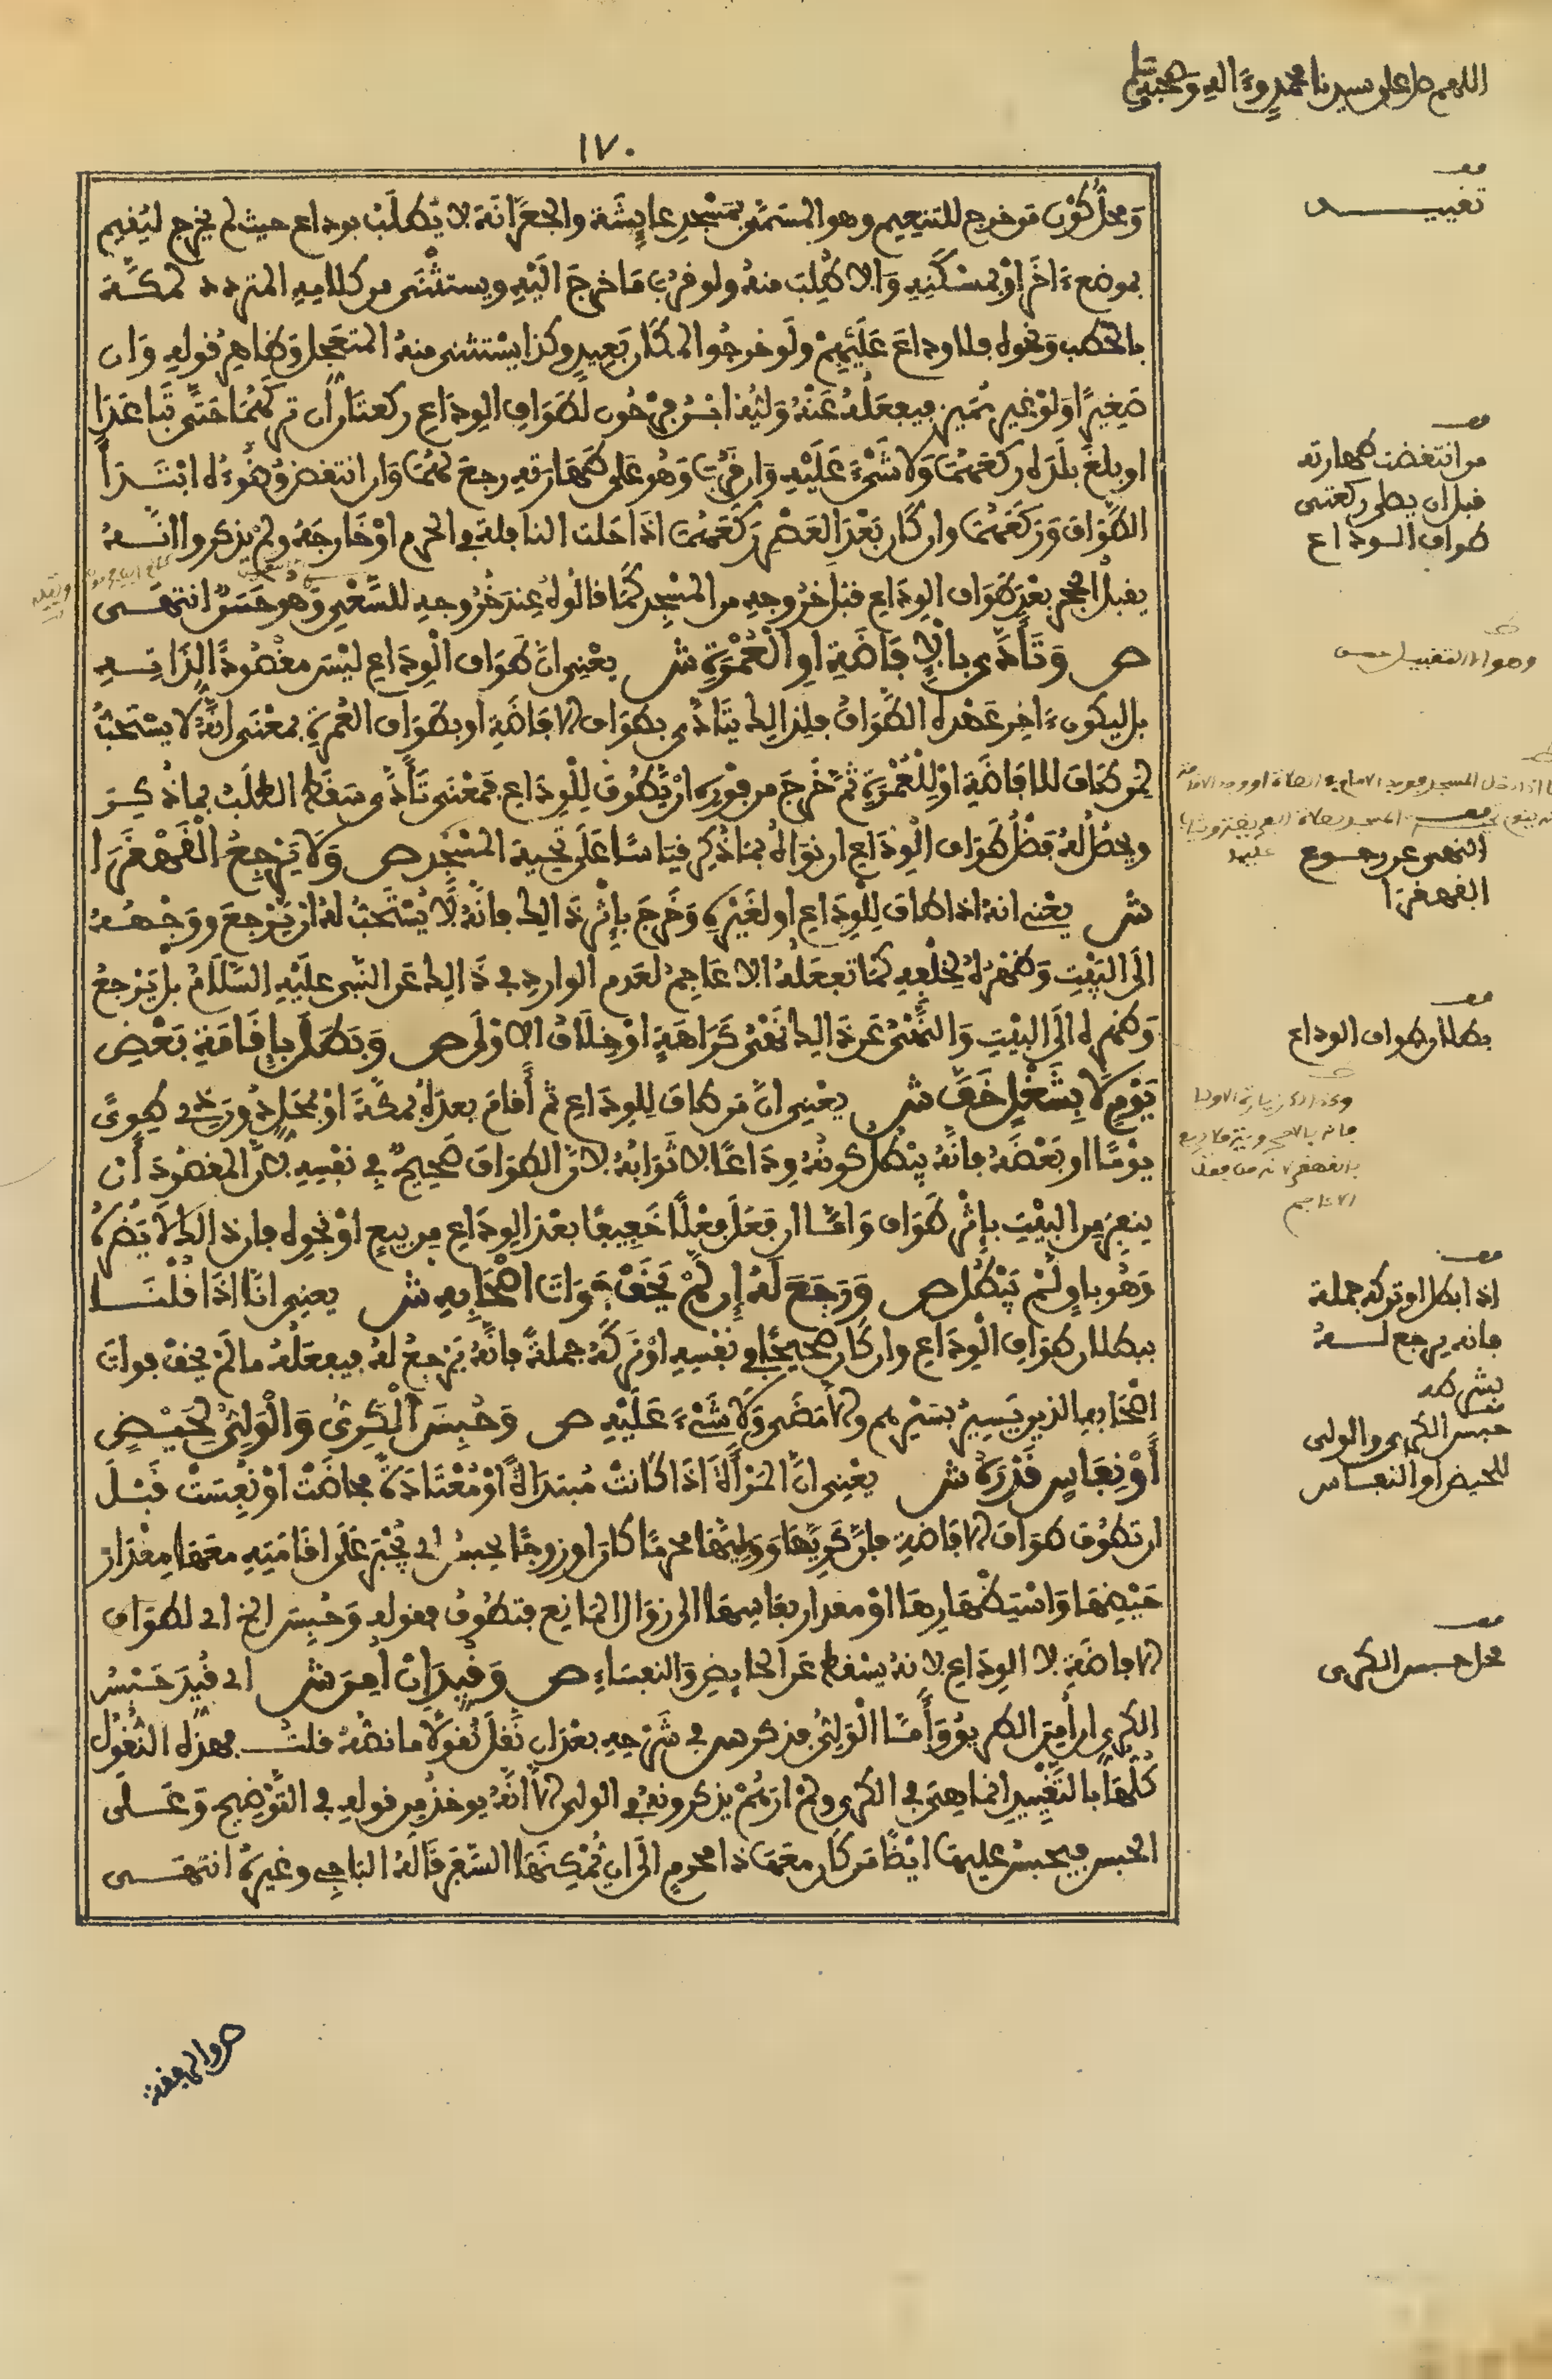 اللهم صل على سيدنا محمد وءاله وصحبه وسلم
١٧٠
وَمحلُّ كَوْن من خرج للتنعيم وهو المسمَّى بمَسْجدِ عايِشَة والجعرَّانَة لا يُطلَبُ بوداع حيث لم يخرج ليُقيم
بموضع ءَاخَر اوْ بمسْكَنِهِ وَالا طُلِبَ منهُ ولو قرُبَ مَا خرجَ اليْهِ ويستثْنَى من كلامِهِ المتردد لمكَّة
بالحَطب وَنحوه فلا وداعَ عَلَيْهِمْ ولَو خرجُوا لمكَان بَعِيدٍ وكذا يسْتثنى منهُ المتعَجل وَظاهِر قوله وَان
صَغِيرًا وَلوْ غير مُميز فيفعَلُهُ عَنْهُ وَليُّه ابْنُ فرْحُون لطَوَافِ الوِدَاعِ ركعتَان ان تركَهُمَا حَتَّى تَباعَدَ
او بلغَ بلَدَه ركعَهُمَا وَلا شَيْءَ عَلَيْهِ وَان قَرُبَ وَهو عَلى طَهَارَتِهِ رجعَ لهُمَا وَان انتقض وُضُوءُه ابْتَدَأَ
الطَّوَافَ وَرَكَعَهُمَا وان كَان بَعْدَ العَصْرِ رَكَعَهُمَا اذَا حَلت النافلة في الحرم اوْ خَارجَهُ ولمْ يذكروا انَّهُ
يقبلُ الحجر بعْدَ طَوَاف الوِدَاعِ قبْلَ خرُوجِهِ من المسْجِد كمَا قالُوهُ عِنْدَ خُرُوجِهِ للسَّعْيِ وَهُو حَسَنٌ انتهَى
ص وَتَأَدَّى بالْإِفَاضَةِ اوِ الْعُمْرَةِ ش يعْنِي انَّ طَوَاف الْوِدَاعِ ليْسَ مقْصُودًا لِذَاتِهِ
بل ليكون ءَاخِر عَهْدِه الطَّوَافُ فلذالك يتَأدَّى بطوَاف الافَاضَةِ او بطَوَاف العُمرةِ بمعْنَى انَّهُ لا يسْتَحبُّ
لمن طَافَ للافَاضَةِ اوْ لِلْعُمْرَةِ ثمَّ خَرَجَ من فوْرِه انْ يَّطُوفَ لِلْوِدَاعِ فَمعْنَى تَأَدَّى سَقَطَ الطَّلَبُ بماذُكِرَ
ويحصُلُ لهُ فضْلُ طَوَاف الْوِدَاعِ ان نوَاهُ بمَا ذُكِر قيَاسًا عَلَى تحية المسْجِد ص وَلَا يَرْجِعُ الْقَهْقَرَا
ش يعْنِي انهُ اذا طافَ لِلْوِدَاعِ او لغَيْرِه وَخَرَجَ بإِثْرِ ذَالِك فانَّهُ لَا يُسْتَحَبُّ لهُ ان يَّرْجعَ ووَجْهُهُ
الَى البَيْتِ وَظهْرُهُ لخلْفِهِ كمَا تفعَلُهُ الاعَاجِمُ لعَدم الوارد في ذَالِك عَن النَّبِي علَيْهِ السَّلَامُ بلْ يَرْجعُ
وَظهْرُه الَى البيْتِ وَالنَّهْيُ عَن ذَالِك نَهْيُ كَرَاهَةٍ اوْ خِلَافُ الاوْلَى ص وَبَطَلَ بإِقَامَةِ بَعْضِ
يَوْمٍ لَا بِشُغْلٍ خَفَّ ش يعْنِي انَّ مَن طافَ لِلوِدَاعِ ثم أَقامَ بعدَهُ بمكَّةَ اوْ بمحَلٍّ دُونَ ذِي طِوًى
يومًا او بَعْضَهُ فانَّهُ يبْطُلُ كونُهُ ودَاعًا لا ثوَابُهُ لانَّ الطوَافَ صَحِيحٌ فِي نفْسِهِ لانَّ المقصُودَ أَنْ
ينفِرَ مِن البيْتِ بإِثْرِ طَوَاف وَامَّا ان فَعَلَ فِعْلًا خَفِيفًا بعْدَ الوِدَاعِ مِن بيعٍ اوْ نحْوِه فان ذالك لَا يَضُرُّ
وَهُو باقٍ ولَمْ يَبْطُل ص وَرَجَعَ لَهُ إِن لَّمْ يَخَفْ فَوَاتَ أَصْحَابِهِ ش يعنِي انَّا اذَا قُلْنَا
ببطلان طَوَاف الْوِدَاعِ وان كَان صَحِيحًا في نفْسِهِ اوْ تَركَهُ جملةً فانَّهُ يَرجعُ لهُ فيفعَلُهُ مَا لَمْ يخَفْ فواتَ
اصْحَابهِ الذين يَسِيرُ بسَيْرِهِم والا مَضَى وَلَا شَيْءَ عَلَيْهِ ص وَحُبِسَ الْكَرِيُّ وَالْوَلِيُّ لِحَيْضٍ
أَوْ نِفَاسٍ قَدْرَهُ ش يعْنِي انَّ المَرْأَةَ اذَا كَانَتْ مُبتدَأةً اوْ مُعْتَادَةً فحاضَتْ اوْ نُفِسَتْ قَبْلَ
ان تطُوفَ طوَاف الافَاضَةِ فانَّ كَرِيَّهَا وَوَلِيَّهَا محرمًا كانَ او زوجًا يحبسُ اي يُجْبَرُ عَلَى اقَامَتِهِ معَهَا مِقْدَارَ
حَيْضِهَا وَاسْتِظْهَارِهَا اوْ مقدار نفاسِهَا الى زوَال المَانِع فتطُوفُ فقوله وَحُبِسَ الخ اي لطوَاف
الافاضَةِ لا الوِدَاعِ لانهُ يسْقط عَن الحايِض وَالنفسَاءِ ص وَقُيِّدَ إِنْ أُمِنَ ش اي قُيِّدَ حَبْسُ
الكري ان أُمِنَ الطريق وَأَمَّا الْوَلِيُّ فذكر س في شَرْحِهِ بعْدَ ان نَقَلَ نُقُولًا ما نصُّهُ قلتُ فهذه النُّقُولُ
كلُّهَا بالتَّقْيِيدِ انما هِيَ في الكري ولمْ ارَهُمْ يذكرونهُ في الولى الا انَّهُ يوخذ من قوله في التَّوْضِيح وَعَلى
الحبس فيحبسُ عليها ايْضًا من كَان معَهَا ذا محرمٍ الَى ان يُمْكِنَهَا السَّفَر قَالَهُ الباجي وغيرُهُ انتهَى
تقييد
من انتقضت طهارته
قبل ان يصلى ركعتى
طواف الوداع
وهو التقبيل حسن
النهى عن رجوع
القهقرا
بطلان طواف الوداع
اذا بطل او تركه جملة
فانه يرجع له
بشرطه
حبس الكرى والولى
للحيض او النفاس
محل حبس الكرى